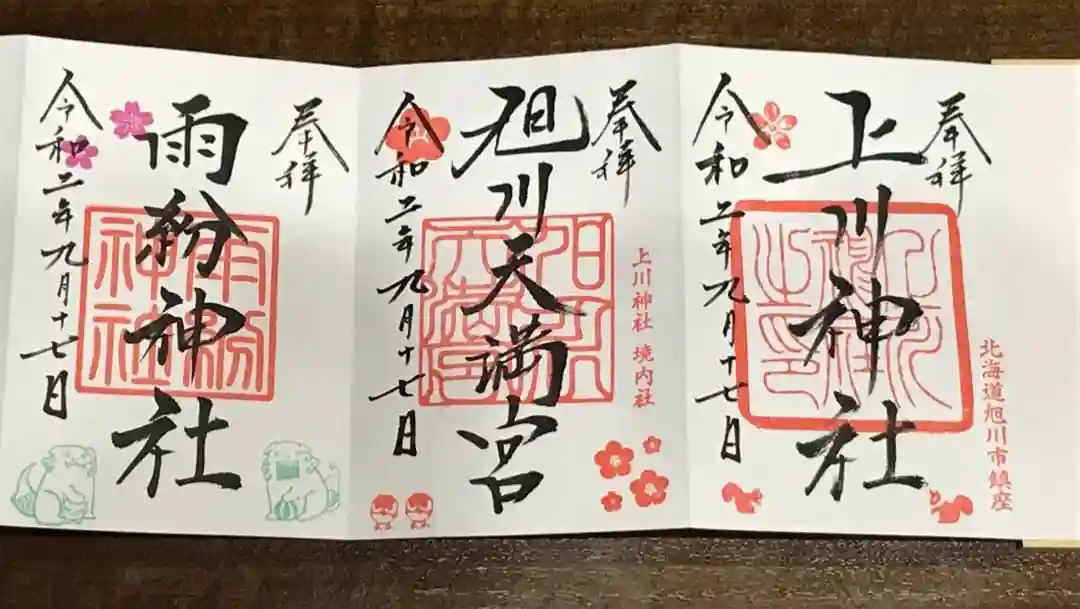 奉拝
上川神社
令和二年九月十七日
北海道旭川市鎮座
上川神社之印
奉拝
旭川天満宮
令和二年九月十七日
上川神社 境内社
奉拝
雨紛神社
令和二年九月十七日
雨紛神社